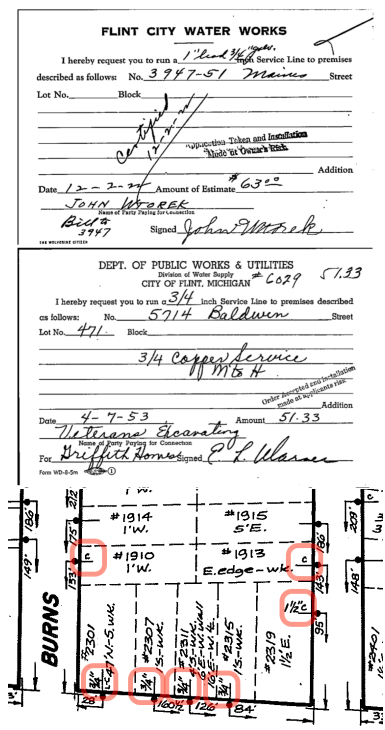 FLINT CITY WATER WORKS
I hereby request you to run a 1" lead 3/4" galv. Inch Service Line to premises
described as follows: No. 3947-51 Maines Street
Lot No. Block
Certified
12-2-22
Application Taken and Installation
Made at Owner's Risk
Addition
Date 12-2-22 Amount of Estimate $63.00
JOHN WTOREK
Name of Party Paying for Connection
Bill to
3947
Signed John Wtorek
DEPT. OF PUBLIC WORKS & UTILITIES
Division of Water Supply
CITY OF FLINT, MICHIGAN #6029 51.33
I hereby request you to run a 3/4 inch Service Line to premises described
as follows: No. 5714 Baldwin Street
Lot No. 471 Block
3/4 Copper Service
M to H
Order Accepted and Installation
made at applicants risk
Addition
Date 4-7-53 Amount 51.33
Veterans Excavating
Name of Party Paying for Connection
For Griffith Homes Signed
Form WD-8-5m
1'W.
212
186'
209'
C
#1914
1'W.
#1915
5'E.
175'
86'
149'
C
#1910
1'W.
#1913
E.edge-wk.
C
133'
143'
148'
1½"C
95'
BURNS
#2301
#2307
1'S.-wk.
#2311
#2315
1'S.-wk.
#2319
1½'E.
#2401
3/4"
3/4"
3/4"
3/4"
28'
160½'
126'
84'